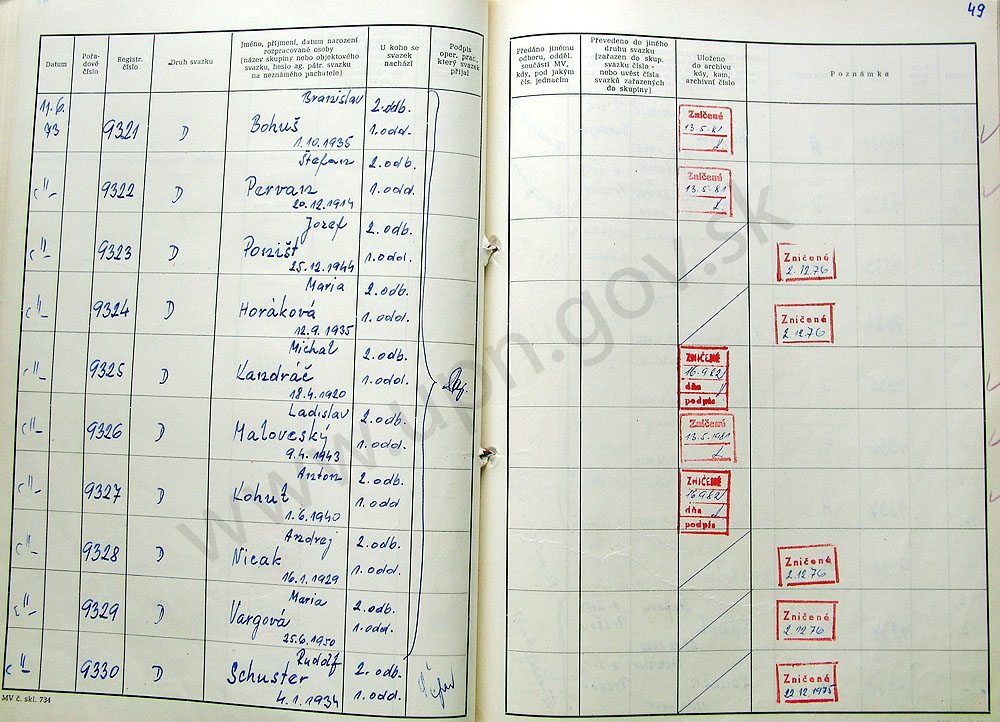 49
Datum
Pořa-
dové
číslo
Registr.
číslo
Druh svazku
Jméno, příjmení, datum narození
rozpracované osoby
(název skupiny nebo objektového
svazku, heslo ag. pátr. svazku
na neznámého pachatele)
U koho se
svazek
nachází
Podpis
oper. prac.,
který svazek
přijal
Předáno jinému
odboru, odděl.
součásti MV,
kdy, pod jakým
čís. jednacím
Převedeno do jiného
druhu svazku
(zařazen do skup.
svazku číslo -
nebo uvést čísla
svazků zařazených
do skupiny)
Uloženo
do archivu
kdy, kam,
archivní číslo
Poznámka
11.6.
73
9321
D
Branislav
Bohuš
1.10.1935
2.odb.
1.odd.
Zničené
13.5.81
-"-
9322
D
Štefan
Pervan
20.12.1914
2.odb.
1.odd.
Zničené
13.5.81
-"-
9323
D
Jozef
25.12.1944
2.odb.
1.odd.
Zničené
2.12.76
-"-
9324
D
Maria
Horáková
12.9.1935
2.odb.
1.odd.
Zničené
2.12.76
-"-
9325
D
Michal
Kandráč
18.4.1920
2.odb.
1.odd.
ZNIČENÉ
16.9.82
dňa
podpis
-"-
9326
D
Ladislav
Maloveský
9.4.1943
2.odb.
1.odd.
Zničené
13.5.1981
-"-
9327
D
Anton
Kohut
1.6.1940
2.odb.
1.odd
ZNIČENÉ
16.9.82
dňa
podpis
-"-
9328
D
Andrej
Nicak
16.1.1929
2.odb.
1.odd.
Zničené
2.12.76
-"-
9329
D
Maria
Vargová
25.6.1950
2.odb.
1.odd.
Zničené
2.12.76
-"-
9330
D
Rudolf
Schuster
4.1.1934
2.odb.
1.odd.
Zničené
22.12.1975
MV č. skl. 734
www.upn.gov.sk